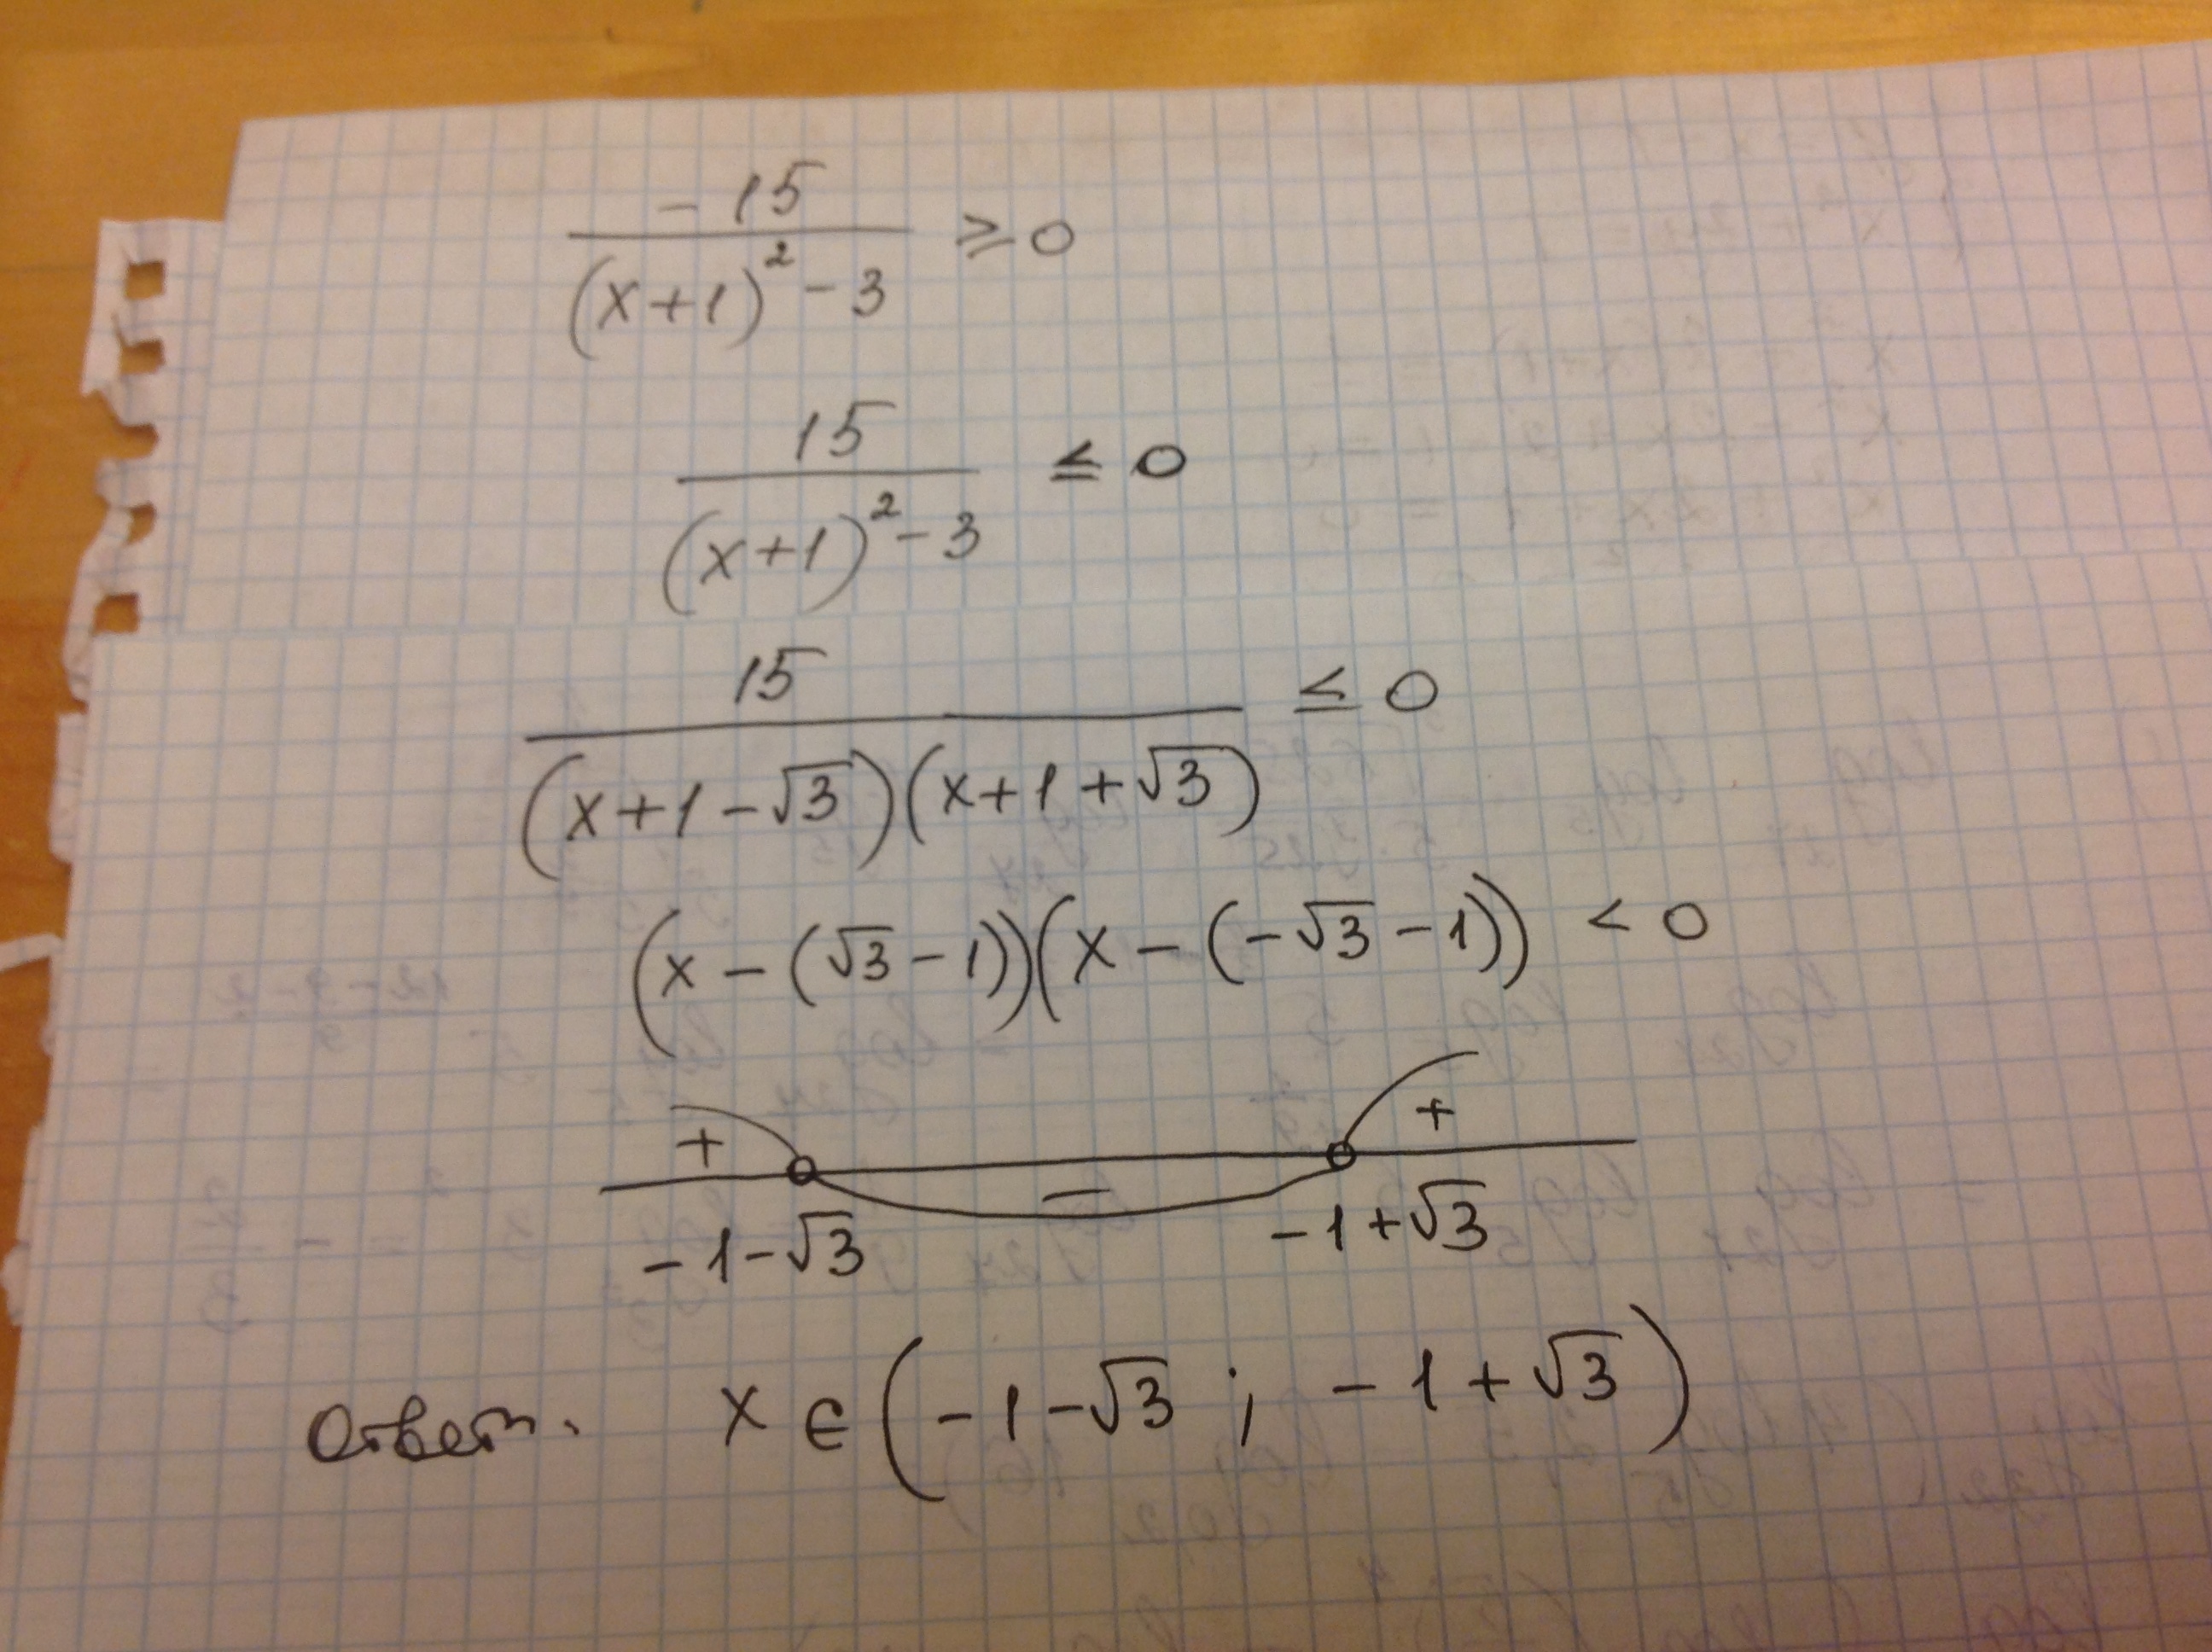 -15
(x+1)² - 3 ≥ 0
15
(x+1)² - 3 ≤ 0
15
(x+1-√3)(x+1+√3) ≤ 0
(x-(√3-1))(x-(-√3-1)) < 0
+ - +
-1-√3 -1+√3
Ответ. x ∈ (-1-√3 ; -1+√3)